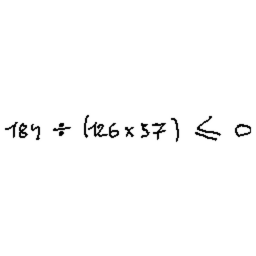 184 ÷ (126 × 57) ≤ 0